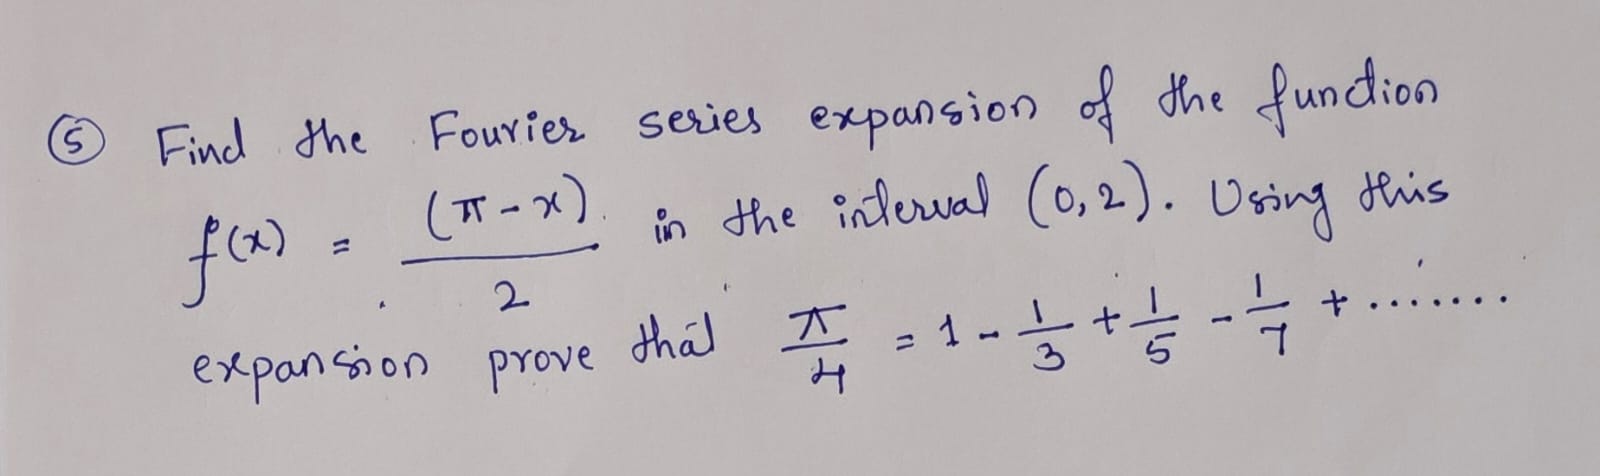 ⑤ Find the Fourier series expansion of the function
f(x) = (π-x)/2 in the interval (0,2). Using this
expansion prove that π/4 = 1 - 1/3 + 1/5 - 1/7 + .......